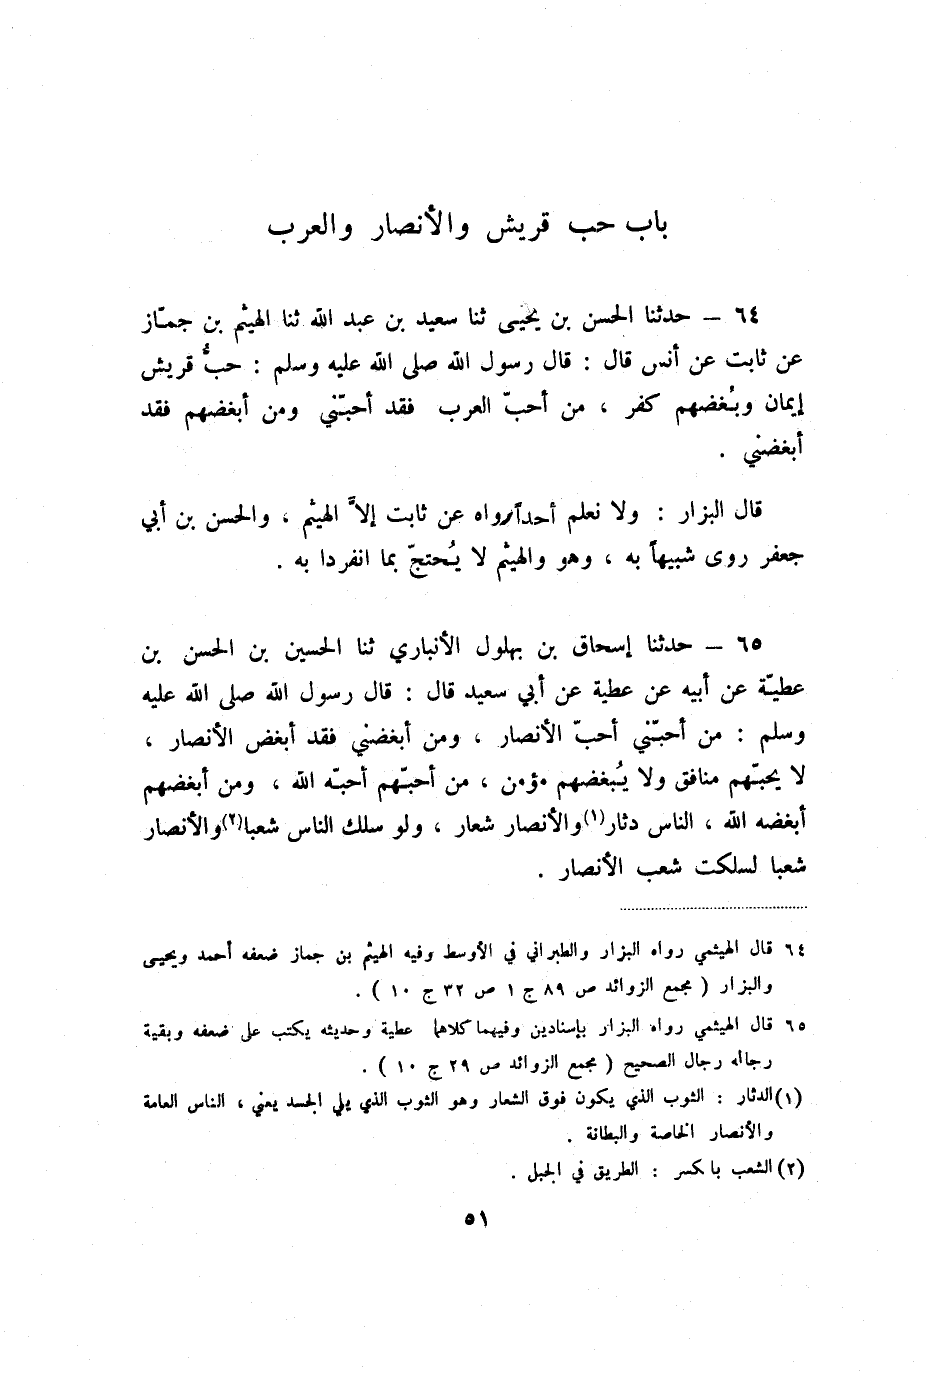 باب حب قريش والأنصار والعرب
٦٤ – حدثنا الحسن بن يحيى ثنا سعيد بن عبد الله ثنا الهيثم بن جمّاز
عن ثابت عن أنس قال : قال رسول الله صلى الله عليه وسلم : حبُّ قريش
إيمان وبُغضهم كفر ، من أحبّ العرب فقد أحبّني ومن أبغضهم فقد
أبغضني .
قال البزار : ولا نعلم أحداً رواه عن ثابت إلاَّ الهيثم ، والحسن بن أبي
جعفر روى شبيهاً به ، وهو والهيثم لا يُحتجّ بما انفردا به .
٦٥ – حدثنا إسحاق بن بهلول الأنباري ثنا الحسين بن الحسن بن
عطيّة عن أبيه عن عطية عن أبي سعيد قال : قال رسول الله صلى الله عليه
وسلم : من أحبّني أحبّ الأنصار ، ومن أبغضني فقد أبغض الأنصار ،
لا يحبّهم منافق ولا يُبغضهم مؤمن ، من أحبّهم أحبّه الله ، ومن أبغضهم
أبغضه الله ، الناس دثار(١) والأنصار شعار ، ولو سلك الناس شعبا(٢) والأنصار
شعبا لسلكت شعب الأنصار .
٦٤ قال الهيثمي رواه البزار والطبراني في الأوسط وفيه الهيثم بن جماز ضعفه أحمد ويحيى
والبزار ( مجمع الزوائد ص ٨٩ ج ١ ص ٣٢ ج ١٠ ) .
٦٥ قال الهيثمي رواه البزار بإسنادين وفيهما كلاهما عطية وحديثه يكتب على ضعفه وبقية
رجاله رجال الصحيح ( مجمع الزوائد ص ٢٩ ج ١٠ ) .
(١) الدثار : الثوب الذي يكون فوق الشعار وهو الثوب الذي يلي الجسد يعني ، الناس العامة
والأنصار الخاصة والبطانة .
(٢) الشعب باكسر : الطريق في الجبل .
٥١